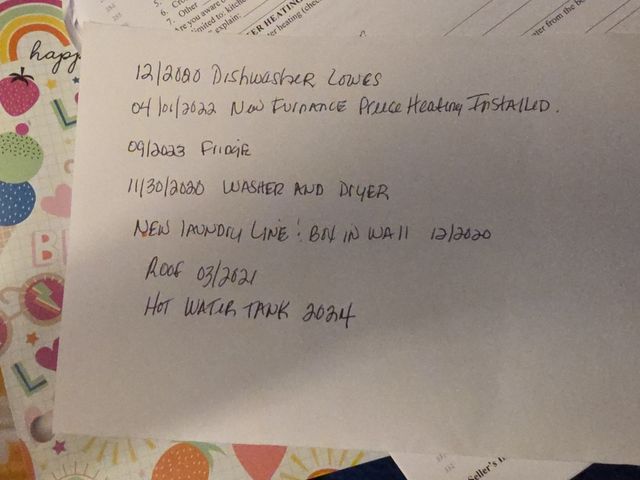 5. Cro
6. Cr
7. Other
Are you aware o
limited to: kitche
explain:
ER HEATING
er heating (chec
happ
12/2020 DishwashER LOWES
04/01/2022 NEW FURNANCE PREECE HEATING INSTALLED.
09/2023 FRIDGE
11/30/2020 WASHER AND DRYER
NEW LAUNDRY LINE ! BOX IN WALL 12/2020
ROOF 03/2021
HOT WATER TANK 2024
Seller's I